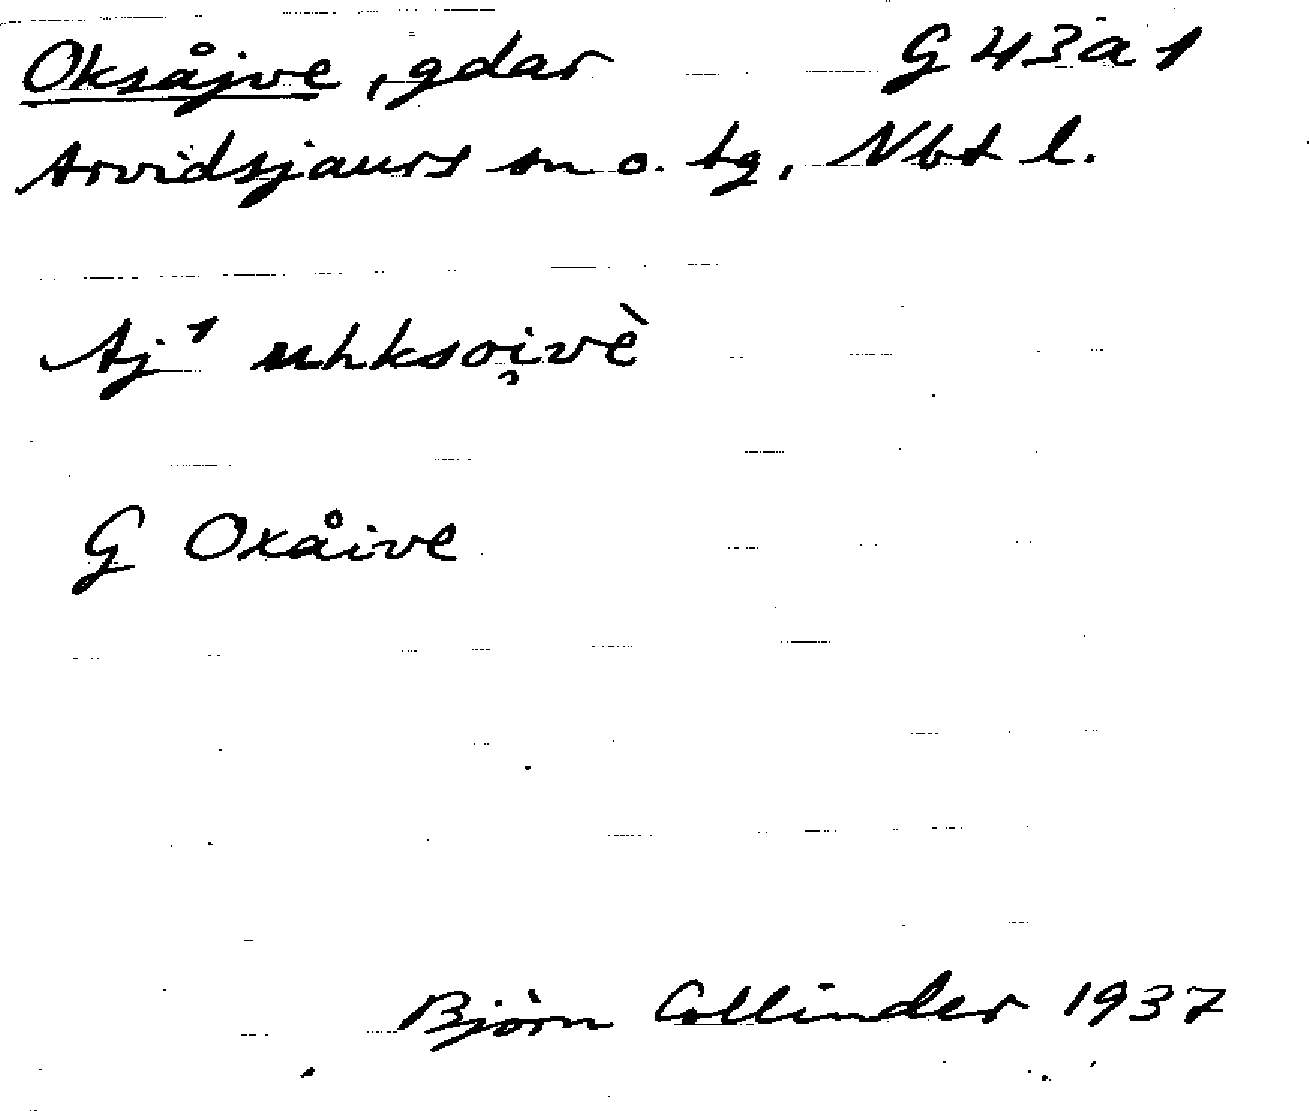 Oksåjve, gdar G 43 a 1
Arvidsjaurs sn o. tg, Nbt l.
Aj¹ uhksoi̯vè
G Oxåive
Björn Collinder 1937